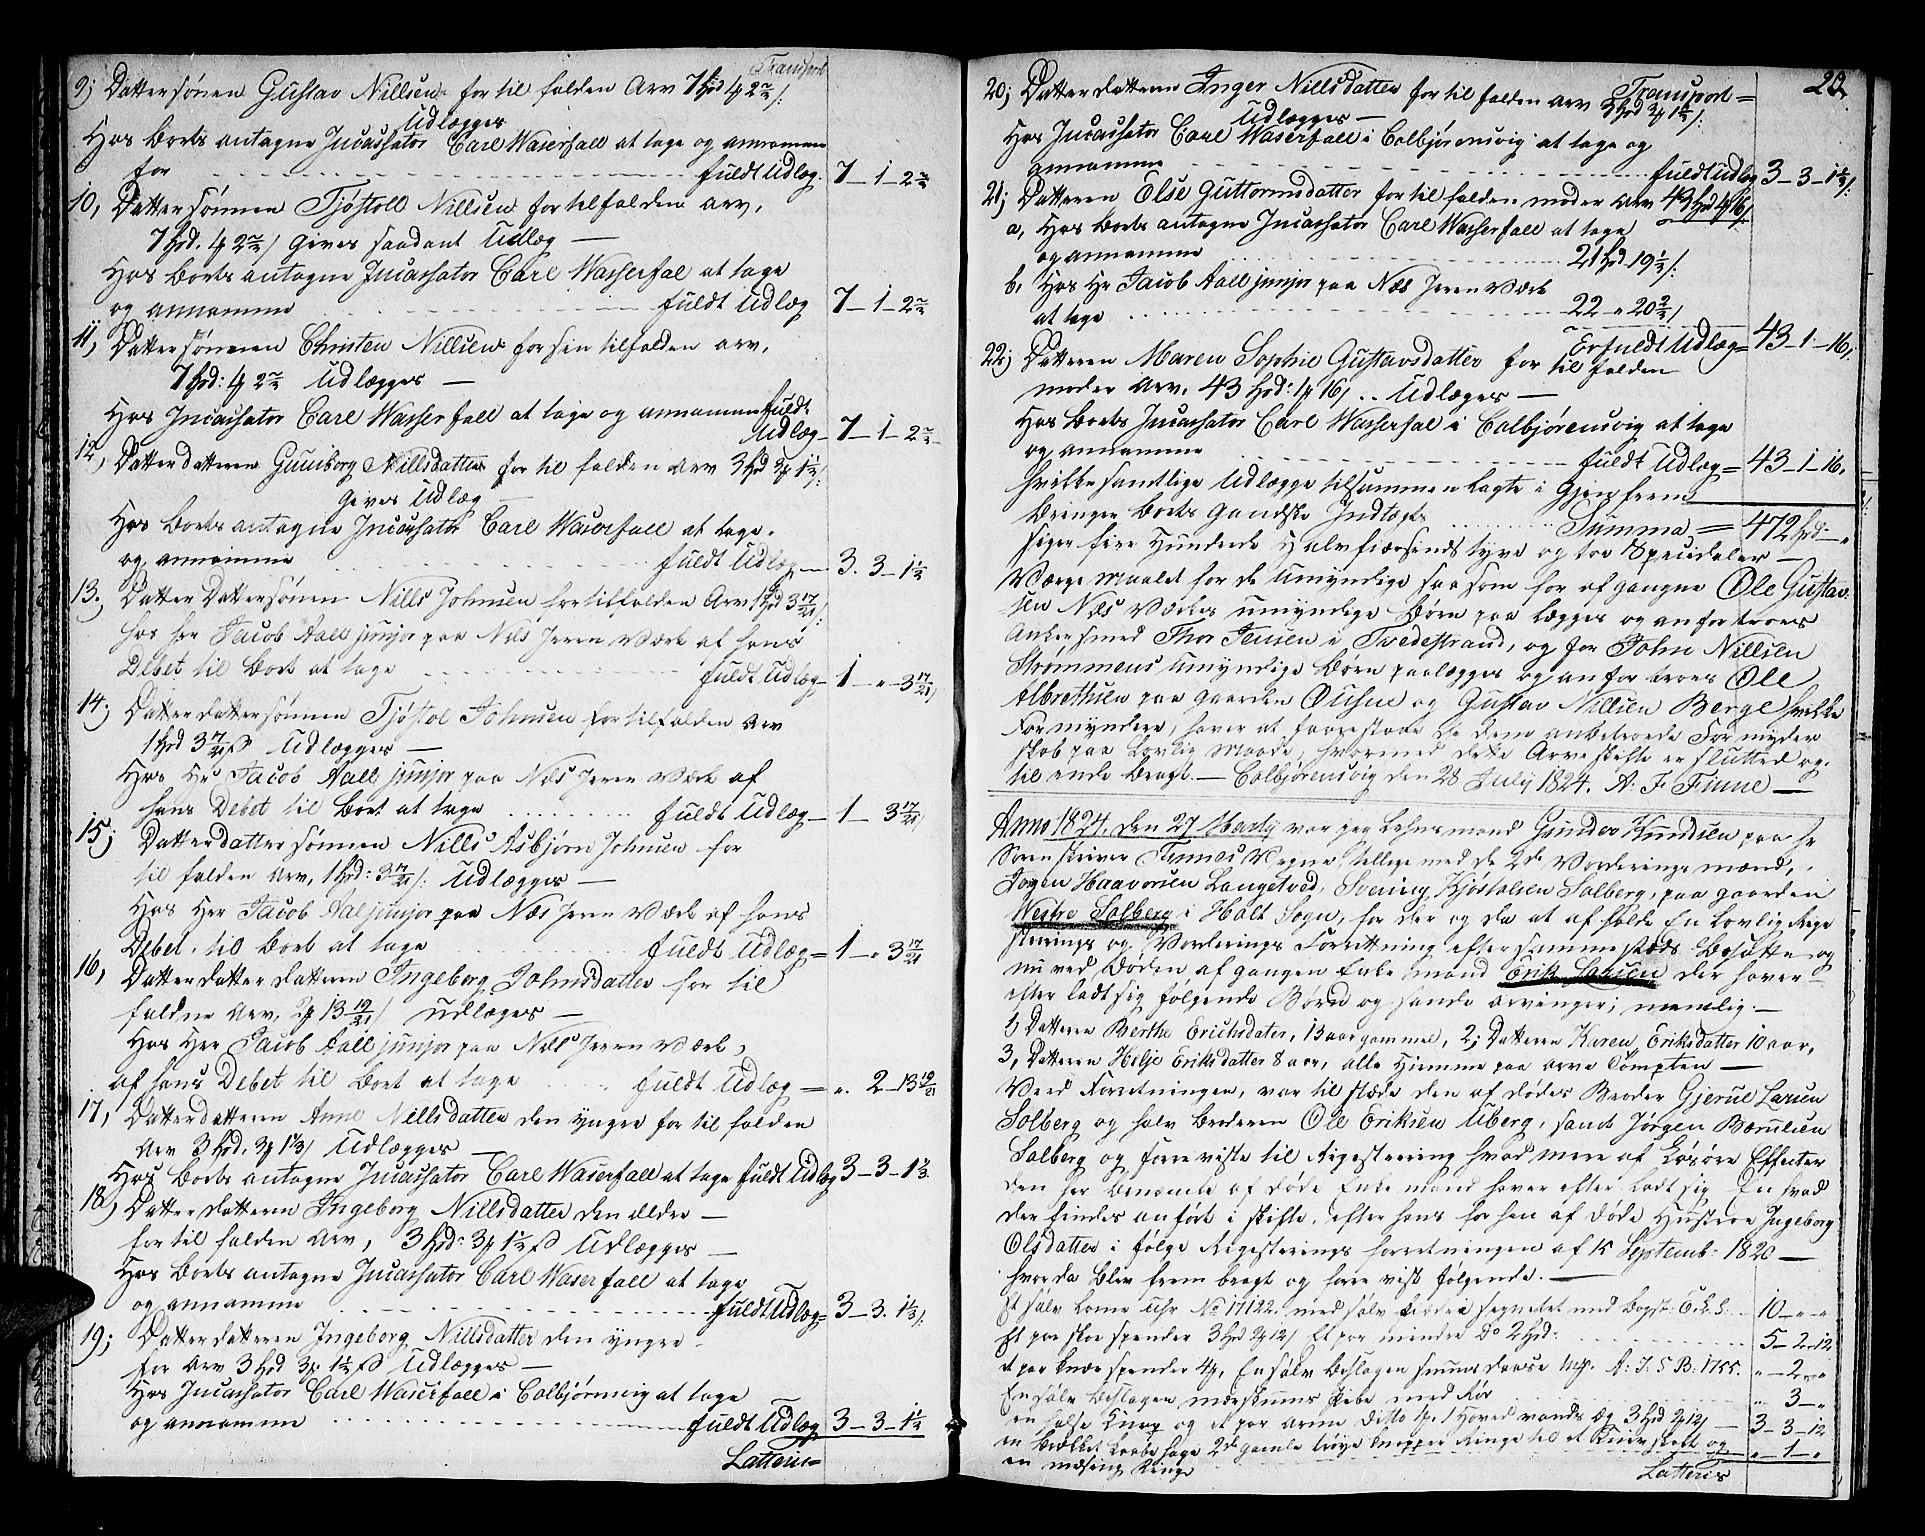 Transport
9; Dattersønen Gustav Nillsen for til falden Arv 7 Spd 1 2/
Udlægges
Hos Boets antagne Incassator Carl Waserfall at tage og annamme
for fuldt Udlæg 7 – 1 – 2
10, Dattersønnen Tjøstoll Nillsen for tilfalden arv,
7 Spd. 1 2/ gives saadant Udlæg —
Hos Boets antagne Incassator Carl Wasserfal at tage
og annamme fuldt Udlæg 7 – 1 – 2
11, Dattersønnen Christen Nillsen for sin tilfalden arv,
7 Spd: 1 2 Udlægges —
Hos Incassator Carl Wasserfall at tage og annamme fuldt
Udlæg 7 – 1 – 2
12, Datterdatteren Gunborg Nillsdatter for til falden arv 3 Spd 3 1½/:
gives Udlæg
Hos Boets antagne Incassator Carl Waserfall at tage
og annamme fuldt Udlæg — 3. 3 – 1½
13., Datter Dattersønen Nills Johnsen for tilfalden Arv 1 Spd 3 17/21/:
hos Hr Jacob Aall junjor paa Næs Jern Værk af hans
Debet til Boet at tage fuldt Udlæg 1 – " – 3 17/21
14; Datterdattersønnen Tjøstol Johnsen for tilfalden arv
1 Spd 3 17/21 Udlægges —
Hos Hr Jacob Aall junjor paa Næs Jern Værk af
hans Debet til Boet at tage fuldt Udlæg — 1 – 3 17/21
15; Datterdattersønnen Nills Asbjørn Johnsen for
til falden arv, 1 Spd: 3 17/21 /: Udlægges —
Hos Her Jacob Aal junjor paa Næs Jern Værk af hans
Debet til Boet at tage fuldt Udlæg = 1 – " 3 17/21
16, Datterdatterdatteren Ingeborg Johnsdatter for til
faldne arv, 2 13 19/21 / udlæges —
Hos Her Jacob Aall junjor paa Næs Jern Værk,
af hans Debet til Boet at tage fuldt Udlæg = ". 2 – 13 19/21
17, Datterdatteren Anne Nillsdatter den yngre for til falden
Arv 3 Spd. 3 1½/ Udlægges —
Hos Boets antagne Incassator Carl Waserfall at tage fuldt Udlæg 3 – 3 – 1½
18, Datterdatteren Ingeborg Nillsdatter den eldre —
for til falden Arv, 3 Spd: 3 1½ Udlægges —
Hos Boets antagne Incassator Carl Waserfall at tage
og annamme fuldt Udlæg = 3 – 3. 1½/:
19; Datterdatteren Ingeborg Nillsdatter den yngre —
for Arv 3 Spd 3 1½ Udlægges —
Hos Incassator Carl Waserfall i Colbjørnsvig at tage
og annamme fuldt Udlæg 3 – 3 – 1½
Latteris
20; Datterdatteren Inger Nillsdatter for til falden arv 3 Spd 3 1½/:
Transport =
Udlægges —
Hos Incassator Carl Waserfall i Colbjørensvig at tage og
annamme fuldt Udlæg 3 – 3 – 1½/:
21; Datteren Else Guttormsdatter for til falden moder Arv 43 Spd 1 16/:
a, Hos Boets antagne Incassator Carl Wasserfall at tage
og annamme 21 Spd 19½/:
b, Hos Hr Jacob Aall junjor paa Næs Jern Værk
at tage 22 " 20
Er fuldt Udlæg = 43. 1 – 16,
22; Datteren Maren Sophie Gustavsdatter for til falden
moder Arv. 43 Spd: 1 16/ .. Udlæges —
Hos Boets Incassator Carl Wasserfal i Colbjørensvig at tage
og annamme fuldt Udlæg = 43 – 1 – 16,
hvilke samtlige Udlægge tilsammen lagte i Gjen frem
bringer Boets gandske Indtægt Summa = 472 Spd – "
siger fire Hundrede halvfiersinds tyve og toe Speciedaler —
Værge maalet for de Umyndige saasom for afgangne Ole Gustav
sen Næs Værkes umyndige Børn paa lægges og anfortroes
Ankersmed Thor Jensen i Tvedestrand, og for John Nillsen
Strømmens Umyndige Børn paalægges og anfortroes Ole
Albrethsen paa gaarden Ousne og Gustav Nillsen Berge hvilke
Formyndere, haver at forestaae de dem anbetroede Formynder
skab paa lovlig maade, hvormed dette Arveskifte er sluttet og
til ende bragt. — Colbjørensvig den 28 July 1824. A: F Finne —
Anno 1824. den 27 Martij var jeg Lehnsmand Gunder Knudsen paa Hr
Sorenskriver Finnes Vegne tillige med de 2de Vorderings mænd,
Jørgen Haavorsen Langetved, Svening Kjøstolsen Solberg, paa gaarden
Westre Solberg i Holt Sogn, for der og da at afholde En lovlig Rege
sterings og Vorderings Forretning efter sammesteds Besatte og
nu ved Døden af gangen Enke mand Erik Larsen der haver
efter ladt sig følgende Børn og sande arvinger; nemlig. —
1, Datteren Berthe Erichsdater, 13 aar gammel, 2; Datteren Karen Eriksdatter 10 aar,
3, Datteren Helje Eriksdatter 8 aar, alle Hjemme paa arve Tompten —
Ved Forretningen, var til stæde den af dødes Broder Gjerul Larsen
Solberg og halv Broderen Ole Eriksen Uberg, samt Jørgen Berulsen
Solberg og foreviste til Registrering hvad mere af Løsøre Effecter
den her benævnte af døde Enke mand haver efter ladt sig En hvad
der findes anført i skifte, efter hans for hen af døde Hustrue Ingeborg
Olsdatter i følge Registerings forretningen af 15 Septemb: 1820 —
hvor da blev frem bragt og fore vist følgende. —
Et sølv Lome Uhr No 17122. med sølv kiede segnetet med Bogst: E. L. S. 10 – " – "
Et par skoe spender 3 Spd 2 12/ Et par mindre Do 2 Spd: 5 – 2 – 12
et par knæe spender 4, En sølv beslagen snuus daase A: J. S B: 1755. " – 2 – "
En sølv beslagen merskums pibe med Rør " 3 – "
en halse Knap og et par arme ditto 1 Hoved vands æg 3 Spd 2 12/ 3 – 3 – 12
2de gamle trøye knapper Ringe til et Kniv skeft og " – 1 – "
en mæsing Ringe
Latteris